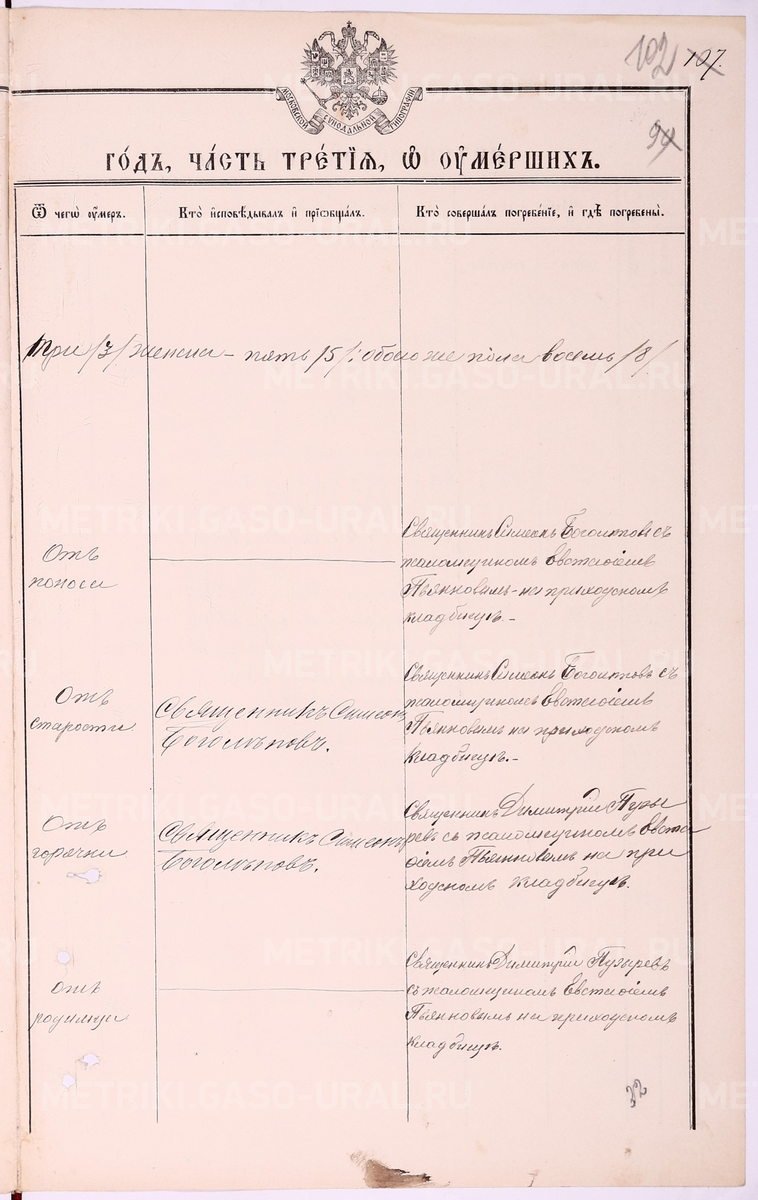 102 107.
МОСКОВСКОЙ СУНОДАЛЬНОЙ ТИПОГРАФІИ
94
ГО́ДЪ, ЧА́СТЬ ТРЕ́ТІѦ, Ѡ҆ ОУ҆МЕ́РШИХЪ.
Ѿ чегѡ̀ оу҆́меръ.
Кто̀ и҆сповѣ́дывалъ и҆ прїѡбща́лъ.
Кто̀ соверша́лъ погребе́нїе, и҆ гдѣ̀ погребены̀.
три /3/ женска - пять /5/; обоего же пола восемь /8/
Отъ
поноса
Священникъ Симеонъ Боголѣповъ съ
псаломщикомъ Евстаѳіемъ
Пьянковымъ - на приходскомъ
кладбищѣ. -
Отъ
старости
Священникъ Симеонъ
Боголѣповъ.
Священникъ Симеонъ Боголѣповъ съ
псаломщикомъ Евстаѳіемъ
Пьянковымъ на приходскомъ
кладбищѣ. -
Отъ
горячки
Священникъ Симеонъ
Боголѣповъ.
Священникъ Димитрій Пузы
ревъ съ псаломщикомъ Евста
ѳіемъ Пьянковымъ на при
ходскомъ кладбищѣ.
Отъ
родимца
Священникъ Димитрій Пузыревъ
съ псаломщикомъ Евстаѳіемъ
Пьянковымъ на приходскомъ
кладбищѣ.
32
METRIKI.GASO-URAL.RU